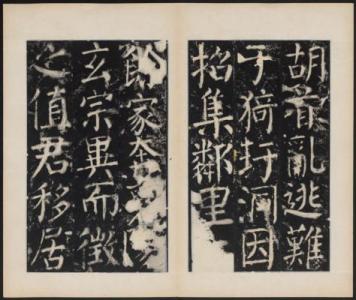 胡首亂逃難
于猗玗洞因
招集鄰里
家奔
玄宗異而徵
之值君移居